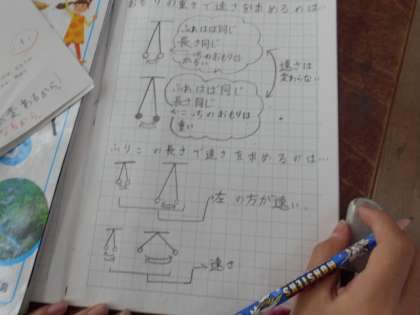 おもりの重さで速さを求めるのは…
ふれはば同じ
長さ同じ
こっちのおもりは
かるい
速さは
変わらない
ふれはば同じ
長さ同じ
こっちのおもりは
重い
ふりこの長さで速さを求めるのは…
左の方が速い…
速さ